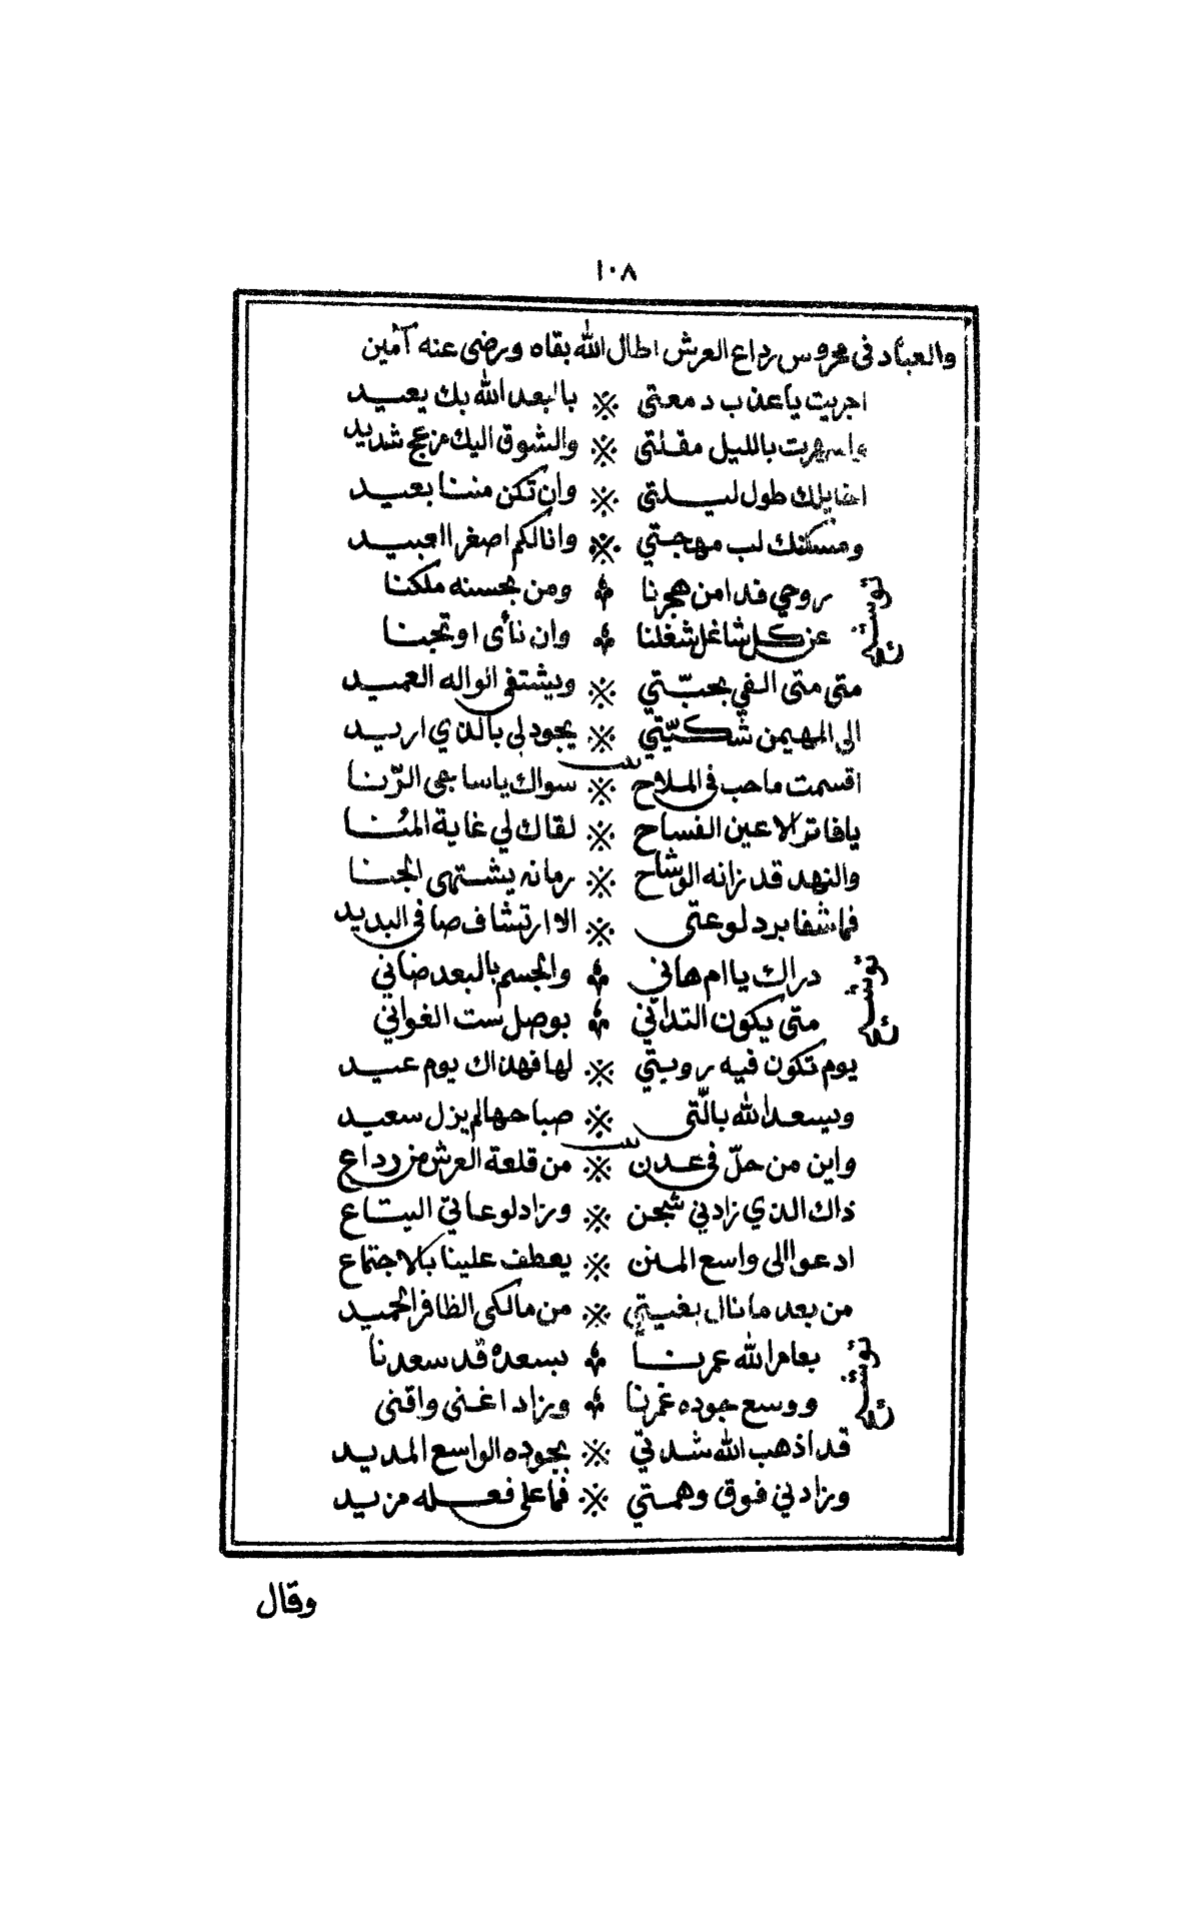 ١٠٨
والعباد في محروس رداع العرش اطال الله بقاه ورضى عنه آمين
اجريت ياعذب دمعتي ※ بالبعد الله بك يعيد
واسهرت بالليل مقلتي ※ والشوق اليك مزعج شديد
طول ليلتي ※ وان تكن مننا بعيد
ومسكنك لب مهجتي ※ وانا لكم اصغر العبيد
توشيح
روحي فدا من هجرنا ومن بحسنه ملكنا
عن كل شاغل شغلنا وان نأى او تجبنا
متى متى الفي بحبّتي ※ ويشتفي الواله العميد
الى المهيمن شكيّتي ※ يجود لي بالذي اريد
بيت
اقسمت ماحب في الملاح ※ سواك ياساجي الرّنا
يافاتر الاعين الفساح ※ لقاك لي غاية المُنا
والنهد قد زانه الوشاح ※ رمانه يشتهي الجنا
فما شفا برد لوعتي ※ الا ارتشاف صافي البديد
توشيح
دراك ياام هاني والجسم بالبعد ضاني
متى يكون التداني بوصل ست الغواني
يوم تكون فيه رويتي ※ لها فهذاك يوم عيد
ويسعد الله بالّتي ※ صباحها لم يزل سعيد
بيت
واين من حلّ في عدن ※ من قلعة العرش من رداع
ذاك الذي زادني شجن ※ وزاد لوعاتي التياع
ادعوا الى واسع المنن ※ يعطف علينا بالاجتماع
من بعد ما نال بغيتي ※ من مالكي الظافر الحميد
توشيح
بعامر الله عمرنا بسعده قد سعدنا
ووسع جوده غمرنا وزاد اغنى واقنى
قد اذهب الله شدتي ※ بجوده الواسع المديد
وزادني فوق وهمتي ※ فما على فعله مزيد
وقال